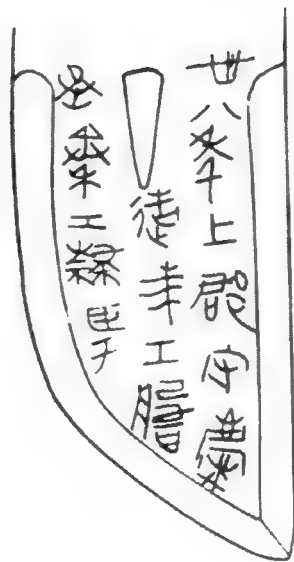 卅八年上郡守慶
造桼工
丞秦工隸臣于